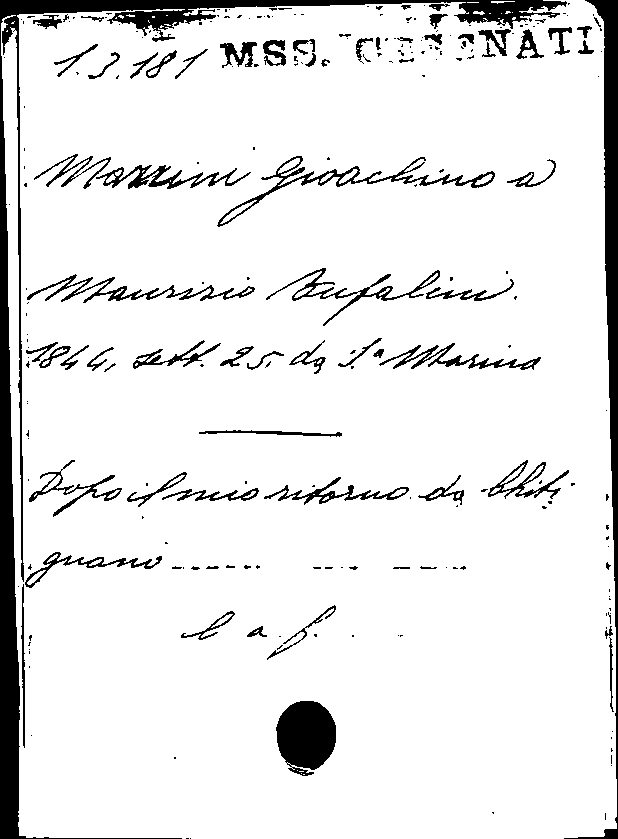 1.3.181 MSS. CESENATI
Mazzini Gioachino a
Maurizio Bufalini.
1844, sett. 25, da S.ª Marina
Dopo il mio ritorno da Chiti
gnano ...... --- ----
l a f.